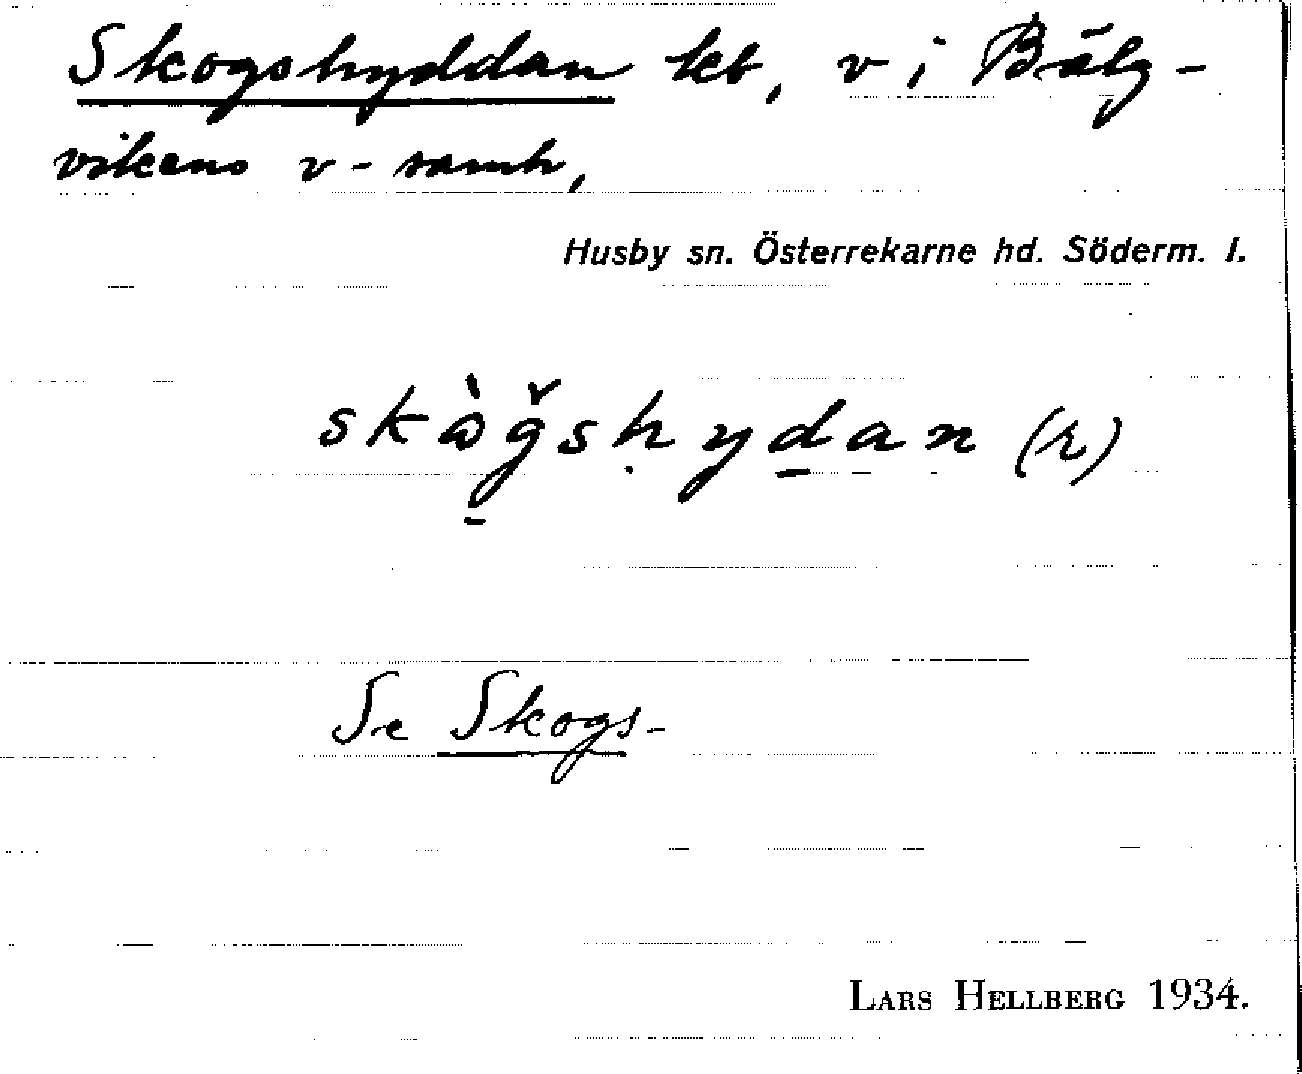 Skogshyddan lct, v i Bälg-
vikens v-samh,
Husby sn. Österrekarne hd. Söderm. l.
skògshydan (r)
Se Skogs-
LARS HELLBERG 1934.